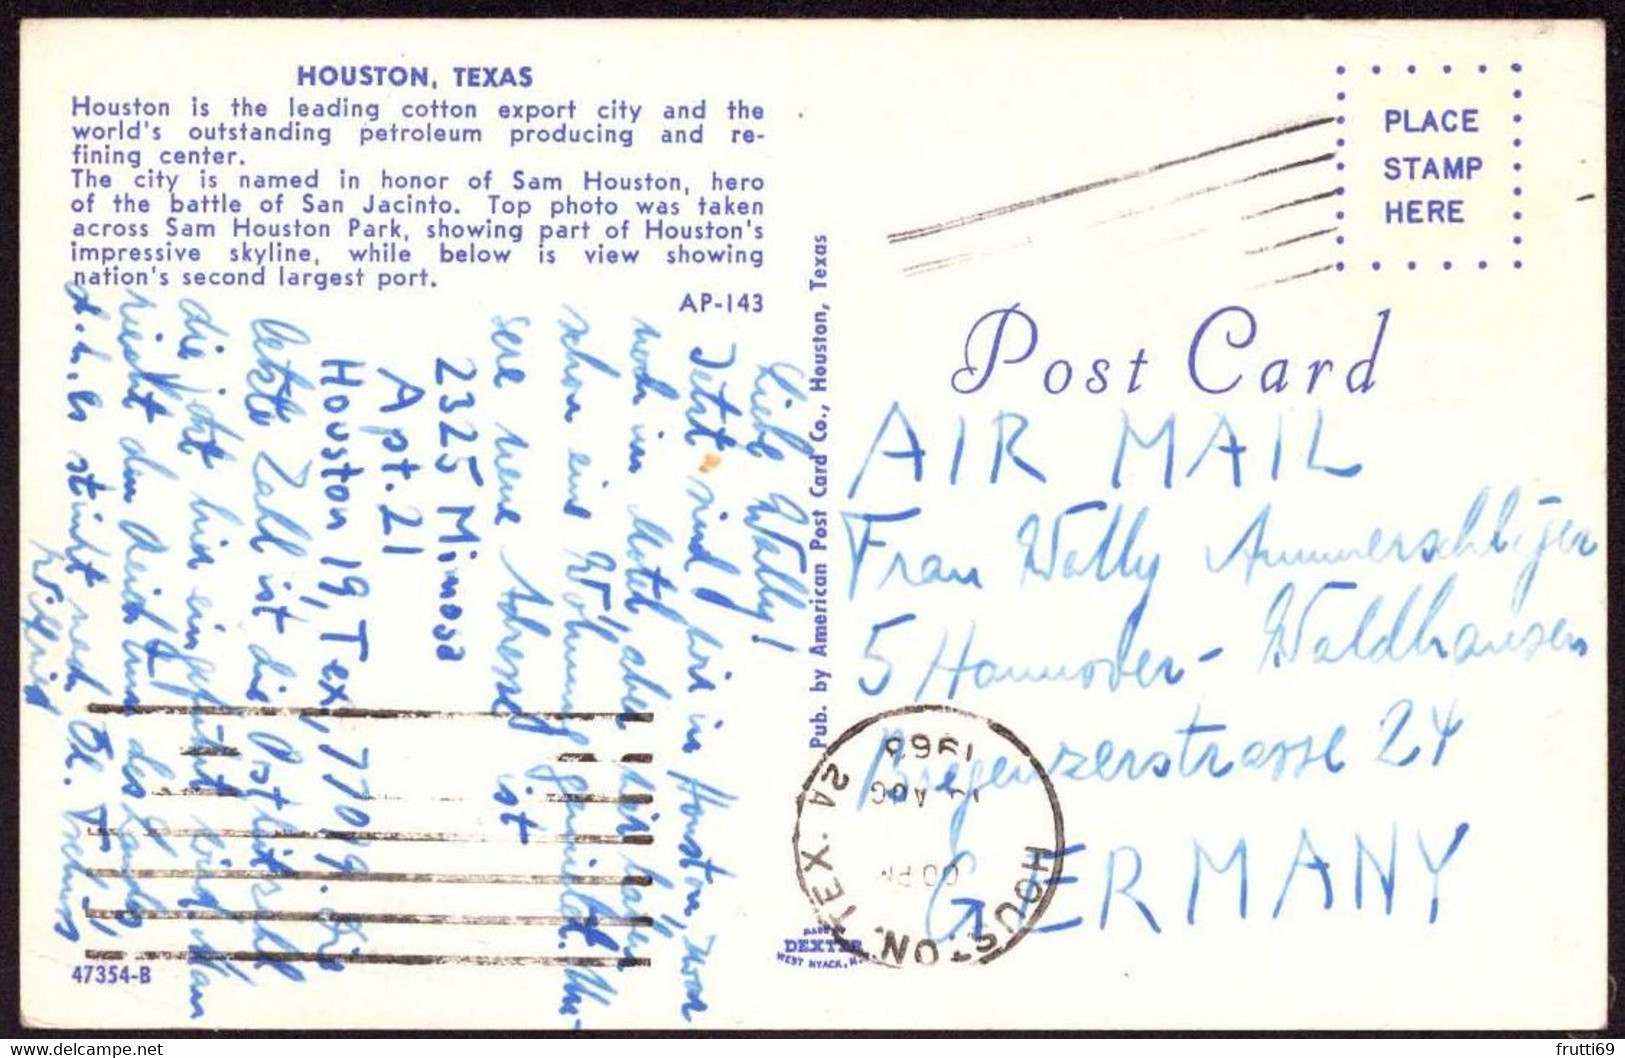 HOUSTON, TEXAS
Houston is the leading cotton export city and the
world's outstanding petroleum producing and re-
fining center.
The city is named in honor of Sam Houston, hero
of the battle of San Jacinto. Top photo was taken
across Sam Houston Park, showing part of Houston's
impressive skyline, while below is view showing
nation's second largest port.
AP-143
Liebe Wally!
Jetzt sind wir in Houston, zwar
noch im Motel, aber wir haben
schon eine Wohnung gemietet. Un-
sere neue Adresse ist
2325 Mimosa
Apt. 21
Houston 19, Tex, 77019. Die
letzte Zahl ist die Postleitzahl
die jetzt hier eingeführt wird. Man
riecht den Reichtum des Landes
d.h. es stinkt nach Öl.
Wilfried
47354-B
Pub. by American Post Card Co., Houston, Texas
MADE
DEXTER
WEST NYACK, N.
PLACE
STAMP
HERE
Post Card
AIR MAIL
Frau Wally Ammerschläger
5 Hannover-Waldhausen
Bregenzerstrasse 24
GERMANY
HOUSTON, TEX. 2A
AUG
1965
frutti69